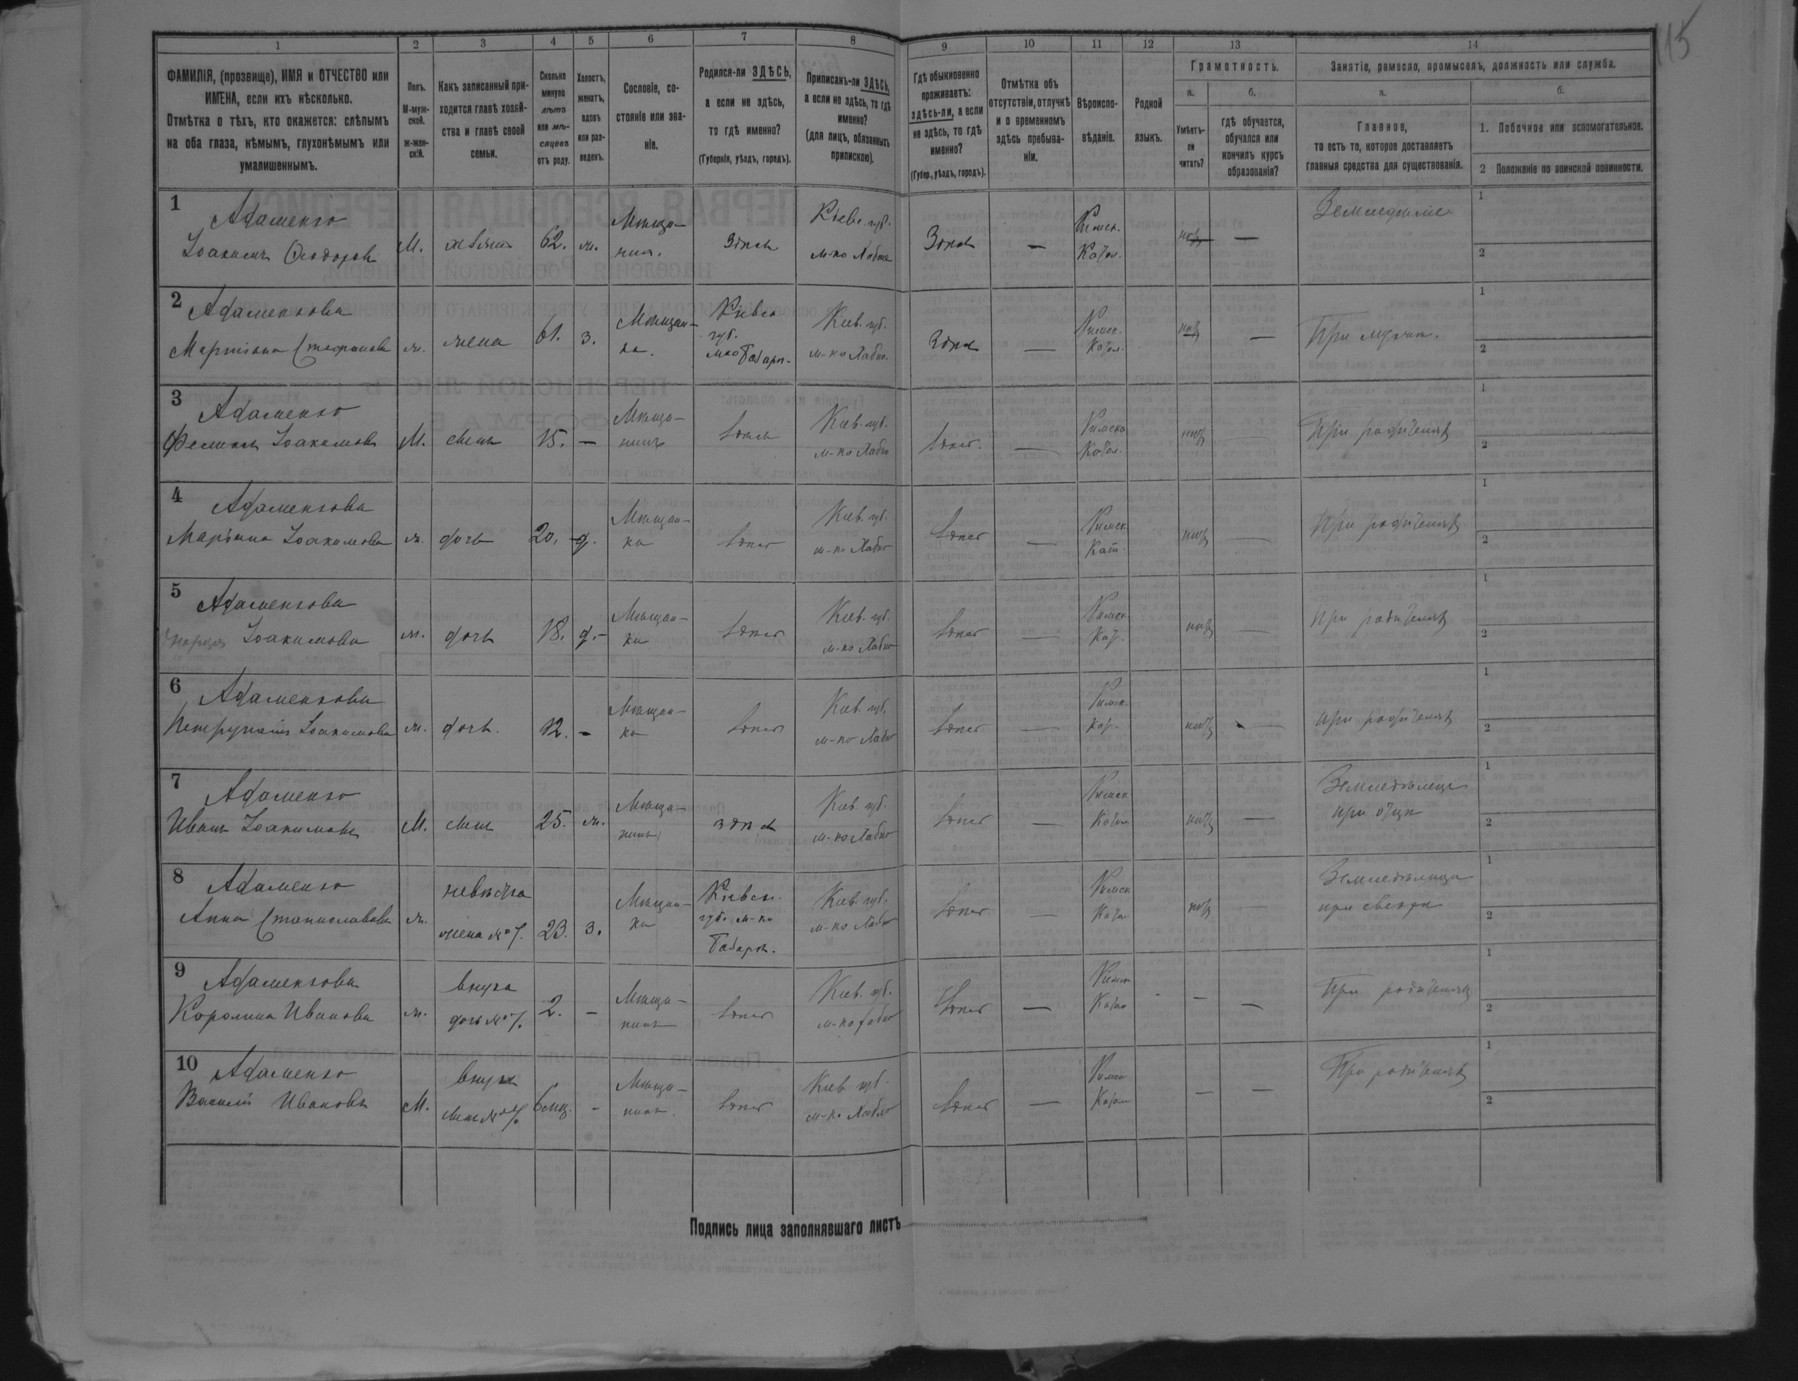 115
1 2 3 4 5 6 7 8 9 10 11 12 13 14
ФАМИЛІЯ, (прозвище), ИМЯ и ОТЧЕСТВО или
ИМЕНА, если ихъ нѣсколько.
Отмѣтка о тѣхъ, кто окажется: слѣпымъ
на оба глаза, нѣмымъ, глухонѣмымъ или
умалишеннымъ.
Полъ.
М-муж-
ской.
ж-жен-
скій.
Какъ записанный при-
ходится главѣ хозяй-
ства и главѣ своей
семьи.
Сколько
минуло
лѣтъ
или мѣ-
сяцевъ
отъ роду.
Холостъ,
женатъ,
вдовъ
или раз-
веденъ.
Сословіе, со-
стояніе или зва-
ніе.
Родился-ли ЗДѢСЬ,
а если не здѣсь,
то гдѣ именно?
(Губернія, уѣздъ, городъ).
Приписанъ-ли ЗДѢСЬ,
а если не здѣсь, то гдѣ
именно?
(для лицъ, обязанныхъ
припискою).
Гдѣ обыкновенно
проживаетъ:
здѣсь-ли, а если
не здѣсь, то гдѣ
именно?
(Губер., уѣздъ, городъ).
Отмѣтка объ
отсутствіи, отлучкѣ
и о временномъ
здѣсь пребыва-
ніи.
Вѣроиспо-
вѣданіе.
Родной
языкъ.
Грамотность.
а.
Умѣетъ-
ли
читать?
б.
гдѣ обучается,
обучался или
кончилъ курсъ
образованія?
Занятіе, ремесло, промыселъ, должность или служба.
а.
Главное,
то есть то, которое доставляетъ
главныя средства для существованія.
б.
1. Побочное или вспомогательное.
2 Положеніе по воинской повинности.
1
Адаменко
Іоакимъ Ѳеодоровъ
М. хозяинъ 62. ж.
Мѣща-
нинъ.
Здѣсь
Кіев. губ.
м-ко Хабно
Здѣсь
—
Римск.
Катол.
нѣтъ —
Земледѣліе
1
2
2
Адаменкова
Стефанова
ж. жена 61. з.
Мѣщан-
ка.
Кіевск
губ.
Кіев. губ.
м-ко Хабно
Здѣсь
—
Римск.
Катол.
нѣтъ —
При мужѣ.
1
2
3
Адаменко
Іоакимовъ
М. сынъ 15. —
Мѣща-
нинъ
Здѣсь
Кіев. губ.
м-ко Хабно
Здѣсь.
—
Римско
Катол.
нѣтъ
При родителяхъ
1
2
4
Адаменкова
Маріана Іоакимова
ж. дочь 20. д.
Мѣщан-
ка
Здѣсь
Кіев. губ.
м-ко Хабно
Здѣсь
—
Римск.
Кат.
нѣтъ —
При родителяхъ
1
2
5
Адаменкова
Іоакимова
ж. дочь 18. д.-
Мѣщан-
ка
Здѣсь
Кіев. губ.
м-ко Хабно
Здѣсь
—
Римск
Кат.
нѣтъ —
При родителяхъ
1
2
6
Адаменкова
Іоакимова
ж. дочь. 12. -
Мѣщан-
ка
Здѣсь
Кіев. губ.
м-ко Хабно
Здѣсь
—
Римск.
Кат.
нѣтъ —
При родителяхъ
1
2
7
Адаменко
Иванъ Іоакимовъ
М. сынъ 25. ж.
Мѣща-
нинъ
здѣсь
Кіев. губ.
м-ко Хабно
Здѣсь
—
Римск
Катол
нѣтъ —
Земледѣлецъ
при отцѣ
1
2
8
Адаменко
Анна Станиславова
ж.
невѣстка
жена № 7. 23. з.
Мѣщан-
ка
Кіевск.
губ. м-ко
Кіев. губ.
м-ко Хабно
Здѣсь
—
Римск
Катол
нѣтъ —
Земледѣлица
при свекрѣ
1
2
9
Адаменкова
Каролина Иванова
ж.
внука
дочь № 7. 2. -
Мѣща-
нинъ
Здѣсь
Кіев. губ.
м-ко Хабно
Здѣсь
—
Римск
Катол
- —
При родителяхъ
1
2
10
Адаменко
Василій Ивановъ
М.
внукъ
сынъ № 7. 6 мѣс. -
Мѣща-
нинъ.
Здѣсь
Кіев губ.
м-ко Хабно
Здѣсь
—
Римск
Катол
— —
При родителяхъ
1
2
Подпись лица заполнявшаго листъ